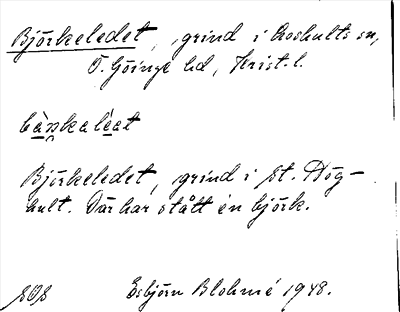 Björkeledet, grind i Loshults sn,
Ö. Göinge hd, Krist. l.
Björkeledet, grind i St. Hög-
hult. Där har stått en björk.
Esbjörn Blohmé 1948.